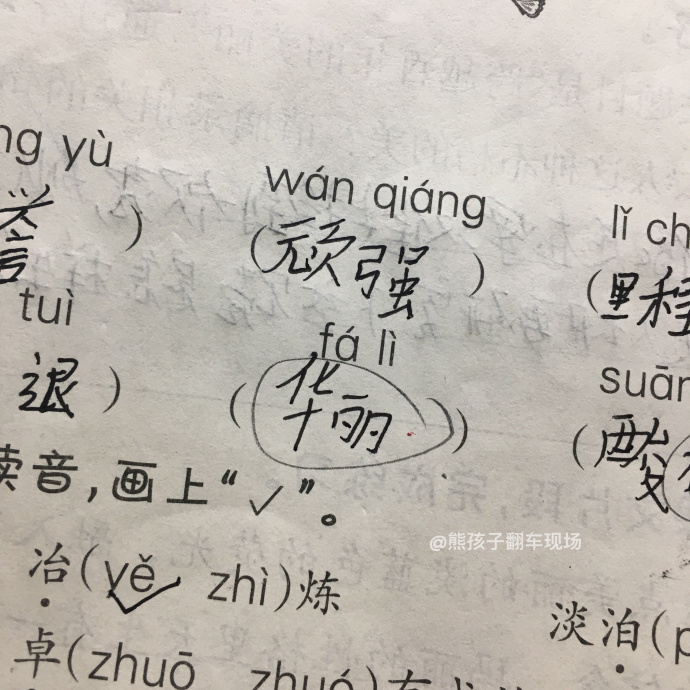 ng yù
誉 )
wán qiáng
(顽强 )
lǐ ch
(里程
tuì
退 )
fá lì
(华丽 )
suān
(酸
读音,画上“✓”。
@熊孩子翻车现场
冶(yě zhì)炼
淡泊(p
卓(zhuō zhuó)有